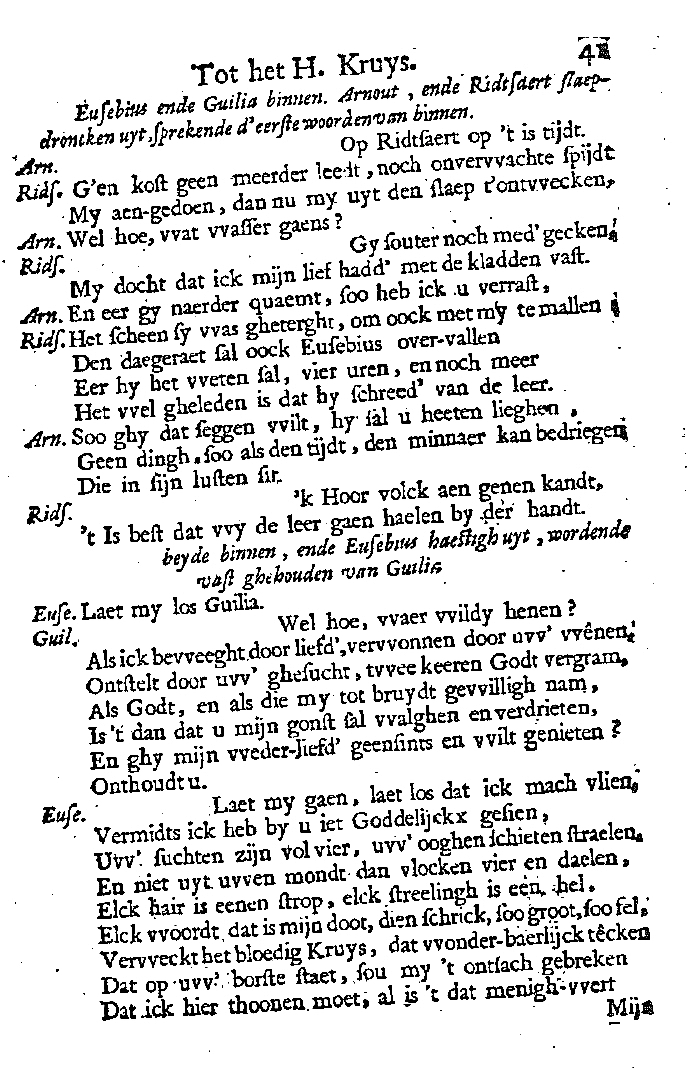 Tot het H. Kruys. 41
Eusebius ende Guilia binnen. Arnout, ende Ridtsaert slaep-
droncken uyt, sprekende d'eerste woorden van binnen.
Arn. Op Ridtsaert op 't is tijdt.
Rids. G'en kost geen meerder leedt, noch onvervvachte spijdt
My aen-gedoen, dan nu my uyt den slaep t'ontvvecken,
Arn. Wel hoe, vvat vvasser gaens?
Rids. Gy souter noch med' gecken!
My docht dat ick mijn lief hadd' met de kladden vast.
Arn. En eer gy naerder quaemt, soo heb ick u verrast,
Rids. Het scheen sy vvas gheterght, om oock met my te mallen;
Den daegeraet sal oock Eusebius over-vallen
Eer hy het vveten sal, vier uren, en noch meer
Het vvel gheleden is dat hy schreed' van de leer.
Arn. Soo ghy dat seggen vvilt, hy sal u heeten lieghen,
Geen dingh, soo als den tijdt, den minnaer kan bedriegen
Die in sijn lusten sit.
Rids. 'k Hoor volck aen genen kandt,
't Is best dat vvy de leer gaen haelen by der handt.
beyde binnen, ende Eusebius haestigh uyt, wordende
vast ghehouden van Guilia
Euse. Laet my los Guilia.
Guil. Wel hoe, vvaer vvildy henen?
Als ick bevveeght door liefd', vervvonnen door uvv' vvênen,
Ontstelt door uvv' ghesucht, tvvee keeren Godt vergram,
Als Godt, en als die my tot bruydt gevvilligh nam,
Is 't dan dat u mijn gonst sal vvalghen en verdrieten,
En ghy mijn vveder-liefd' geensints en vvilt genieten?
Onthoudt u.
Euse. Laet my gaen, laet los dat ick mach vlien,
Vermidts ick heb by u iet Goddelijckx gesien,
Uvv' suchten zijn vol vier, uvv' ooghen schieten straelen,
En niet uyt uvven mondt dan vlocken vier en daelen,
Elck hair is eenen strop, elck streelingh is een hel,
Elck vvoordt dat is mijn doot, dien schrick, soo groot, soo fel,
Vervveckt het bloedig Kruys, dat vvonder-baerlijck têcken
Dat op uvv' borste staet, sou my 't ontsach gebreken
Dat ick hier thoonen moet, al is 't dat menigh-vvert
Mijn